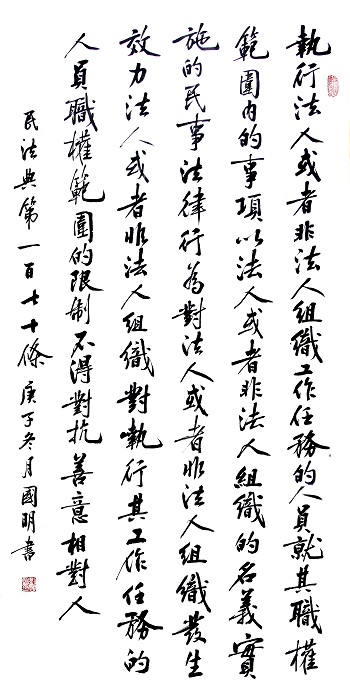 執行法人或者非法人組織工作任務的人員就其職權
範圍內的事項以法人或者非法人組織的名義實
施的民事法律行為對法人或者非法人組織發生
效力法人或者非法人組織對執行其工作任務的
人員職權範圍的限制不得對抗善意相對人
民法典第一百七十條庚子冬月國明書